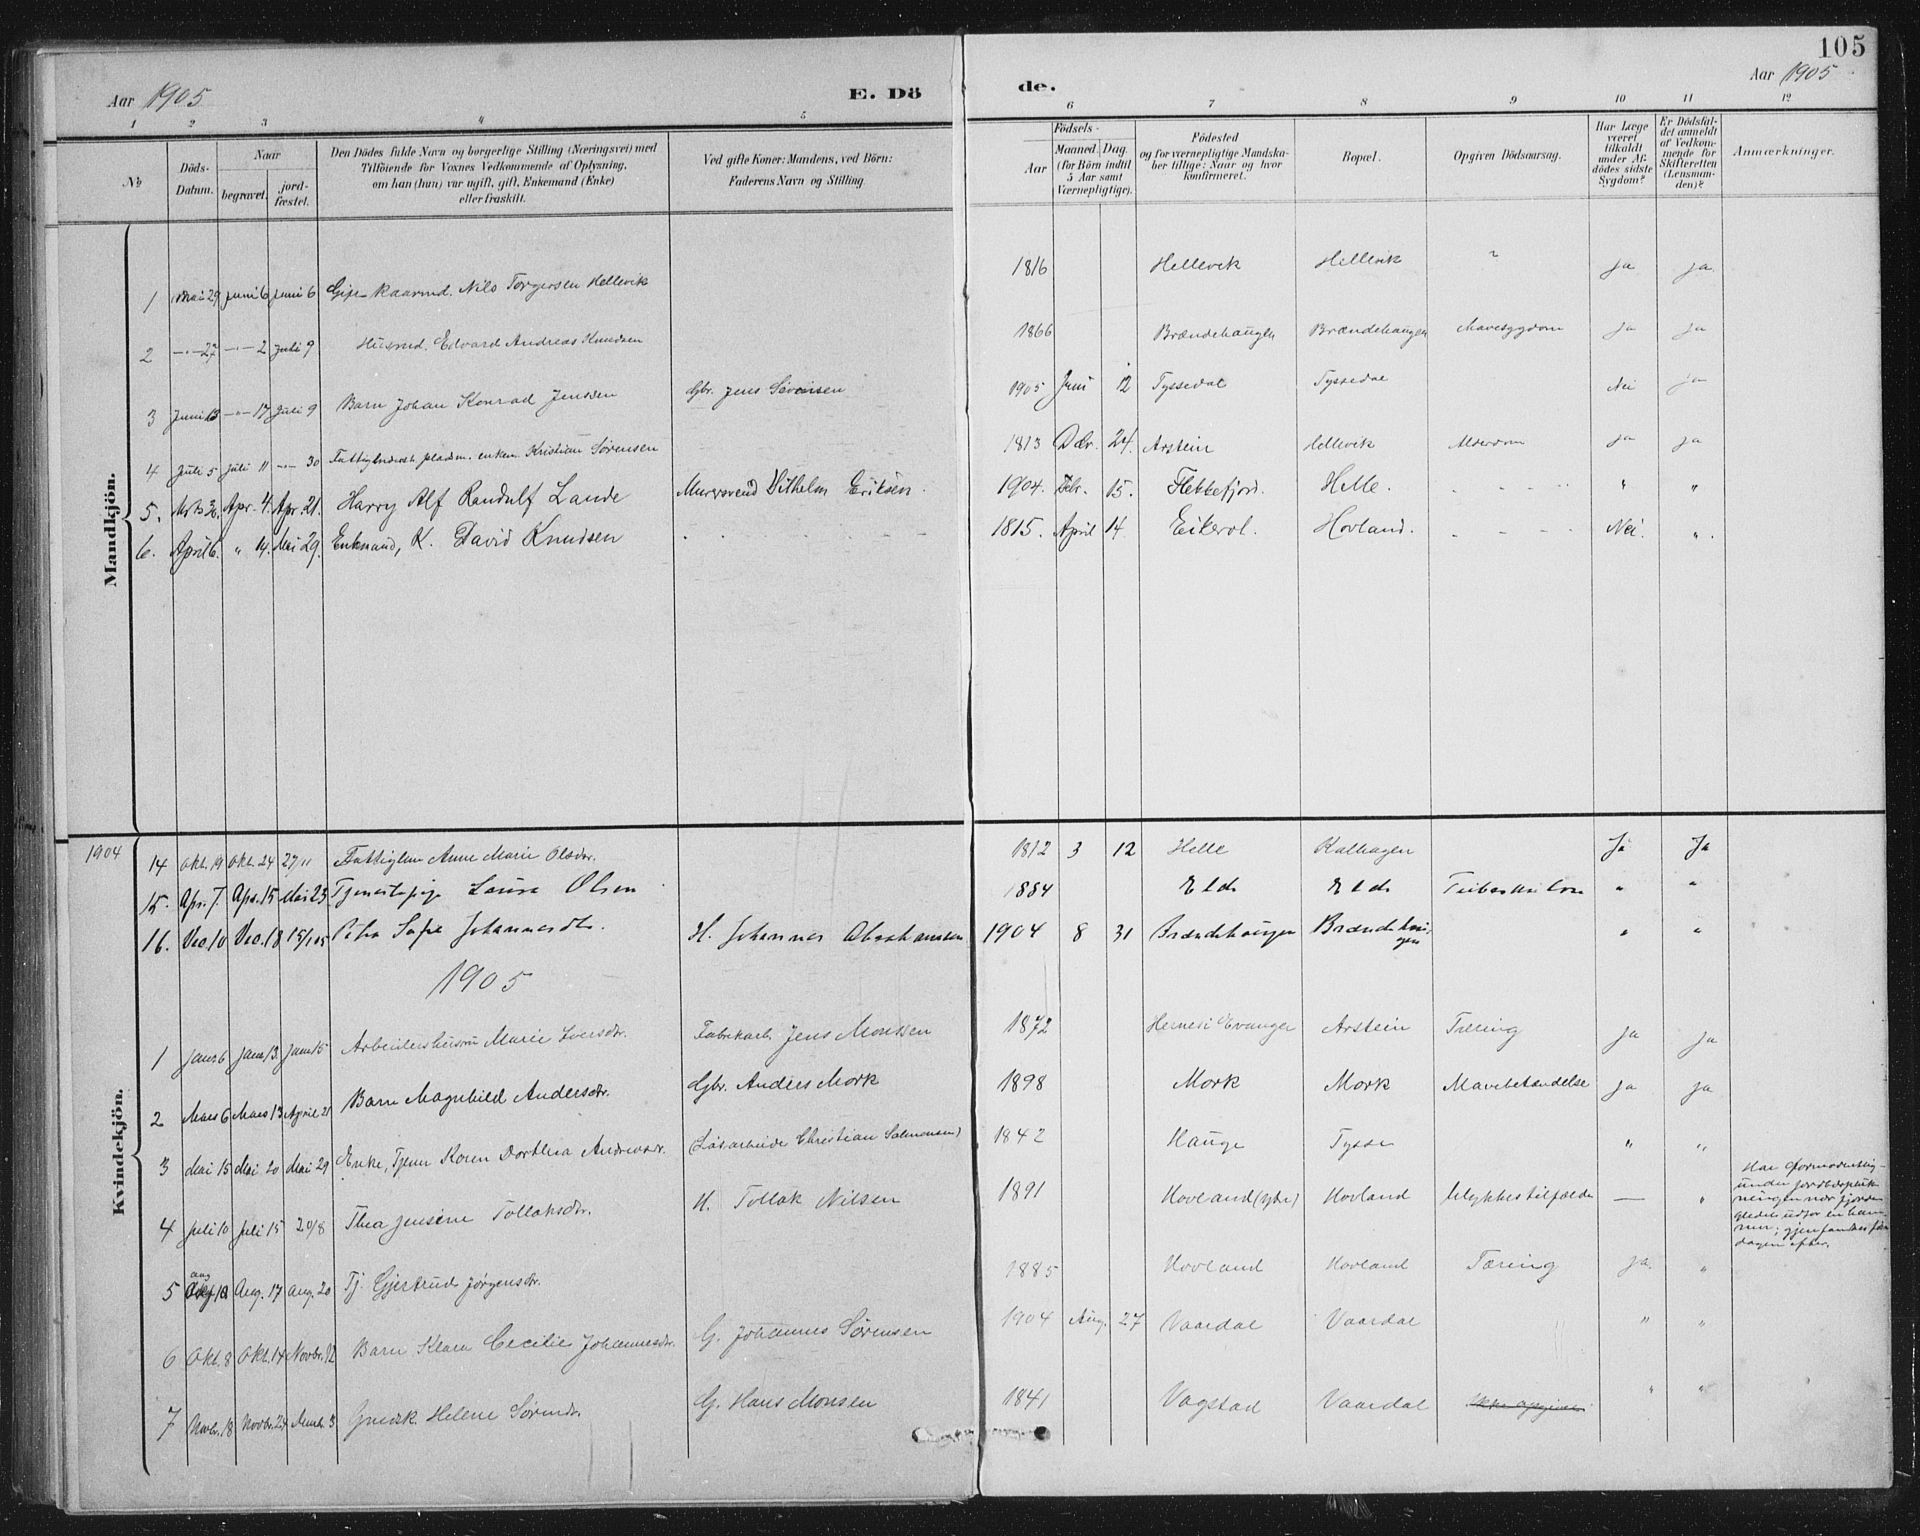 105
Aar 1905
E. Dö
de.
Aar 1905
1 2 3 4 5 6 7 8 9 10 11 12
№
Döds-Datum.
Naar
begravet.
jord-fæstet.
Den Dödes fulde Navn og borgerlige Stilling (Næringsvei) med
Tilföiende for Voxnes Vedkommende af Oplysning,
om han (hun) var ugift, gift, Enkemand (Enke)
eller fraskilt.
Ved gifte Koner: Mandens, ved Börn:
Faderens Navn og Stilling.
Födsels-
Aar
Maaned. Dag.
(for Börn indtil
5 Aar samt
Værnepligtige).
Födested
og for værnepligtige Mandska-
ber tillige: Naar og hvor
konfirmeret.
Bopæl.
Opgiven Dödsaarsag.
Har Læge
været
tilkaldt
under Af-
dödes sidste
Sygdom?
Er Dödsfal-
det anmeldt
af Vedkom-
mende for
Skifteretten
(Lensman-
den)?
Anmærkninger.
Mandkjön.
1 Mai 29 Juni 6 Juni 6 Nils Torgersen Hellevik 1816 Hellevik Hellevik " ja ja
2 -"- 27 -"- 2 Juli 9 Husmd. Edvard Andreas Knudsen 1866 Brændehaugen Brændehaugen Mavesygdom ja ja
3 Juni 13 -"- 17 Juli 9 Barn Johan Konrad Jenssen Gbr. Jens Severinsen 1905 Juni 12 Tyssedal Tyssedal Nei ja
4 Juli 5 Juli 11 -"- 30 enkem. Kristian Sørensen 1813 Decbr. 24 Arstein Hellevik Alderdom ja ja
5. Apr. 4. Apr. 21. Harry Alf Randulf Lande Murersvend Vilhelm Eriksen. 1904. 15. Flekkefjord. Helle. " "
6. April 6. " 14. Mai 29. Enkmand, K. David Knudsen 1815. April 14 Eikevol. Hovland. Nei. ".
Kvindekjön.
1904
14 Okt. 19 Okt. 24 27/11 Fattiglem Anne Marie Olsdtr. 1812 3 12 Helle Kalhagen Ja Ja
15. Apr. 7. Apr. 15 Mai 23 Tjenestepige Laura Olsen 1884 Elde Elde " "
16. Dec. 10 Dec. 18 15/1 05 Petra Sofie Johannesdtr. H. Johannes Abrahamsen 1904 8 31 Brændehaugen Brændehaugen " "
1905
1 Janr. 6 Janr. 13. Janr. 15 Arbeidershustru Marie Iversdtr. Fabrikarb. Jens Monssen 1872 Hernesi Evanger Arstein Tæring ja ja
2 Mars 6 Mars 13 April 21 Barn Magnhild Andersdtr. Gbr. Anders Mork 1898 Mork Mork Mavebetændelse ja ja
3 Mai 15 Mai 20 Mai 29 Enke, Tjenr Karen Dorthea Andreasdtr. Løsarbeide Christian Salmonsen) 1842 Hauge Tysse " "
4 Juli 10 Juli 15 20/8 Thea Jensine Tollaksdtr. H. Tollak Nilsen 1891 Hovland (ytre) Hovland Ulykkestilfælde — " Har formodentlig
under
ningen nær fjorden
gledet ud for en ham-
mer; gjenfandtes
dagen efter.
5 Aug. 12 Aug. 17 Aug. 20 Tj. Gjertrud Jørgensdtr. 1885 Hovland Hovland Tæring ja. "
6 Okt. 8 Okt. 14 Novbr. 12 Barn Klara Cecilie Johannesdtr. G. Johannes Sørensen 1904 Aug. 27 Vaardal Vaardal " "
7 Novbr. 18 Novbr. 24 3 Helene Sørensdtr. G. Hans Monsen 1841 Vagstad Vaardal Ikke opgiven " "